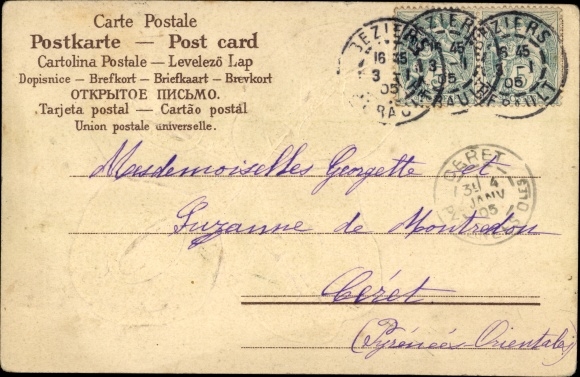 Carte Postale
Postkarte — Post card
Cartolina Postale — Levelező Lap
Dopisnice – Brefkort – Briefkaart – Brevkort
ОТКРЫТОЕ ПИСЬМО.
Tarjeta postal — Cartão postál
Union postale universelle.
BEZIERS
16 45
3 1
05
HERAULT
BEZIERS
16 45
3 1
05
HERAULT
BEZIERS
16 45
05
HERAULT
Masdemoiselles Georgette et
Suzanne de Montredon
Céret
(Pyrénées Orientales)
CERET
4
JANV
05